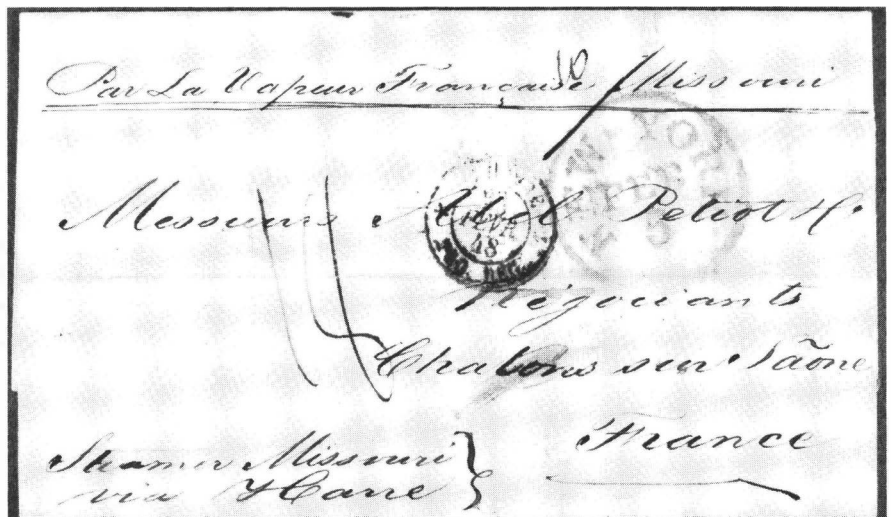 Par La Vapeur Française Missouri
10
NEW-YORK
FEB
5
Messieurs Abel Petiot &
48
Négociants
Chalons sur Saône
France
Steamer Missouri
via Havre